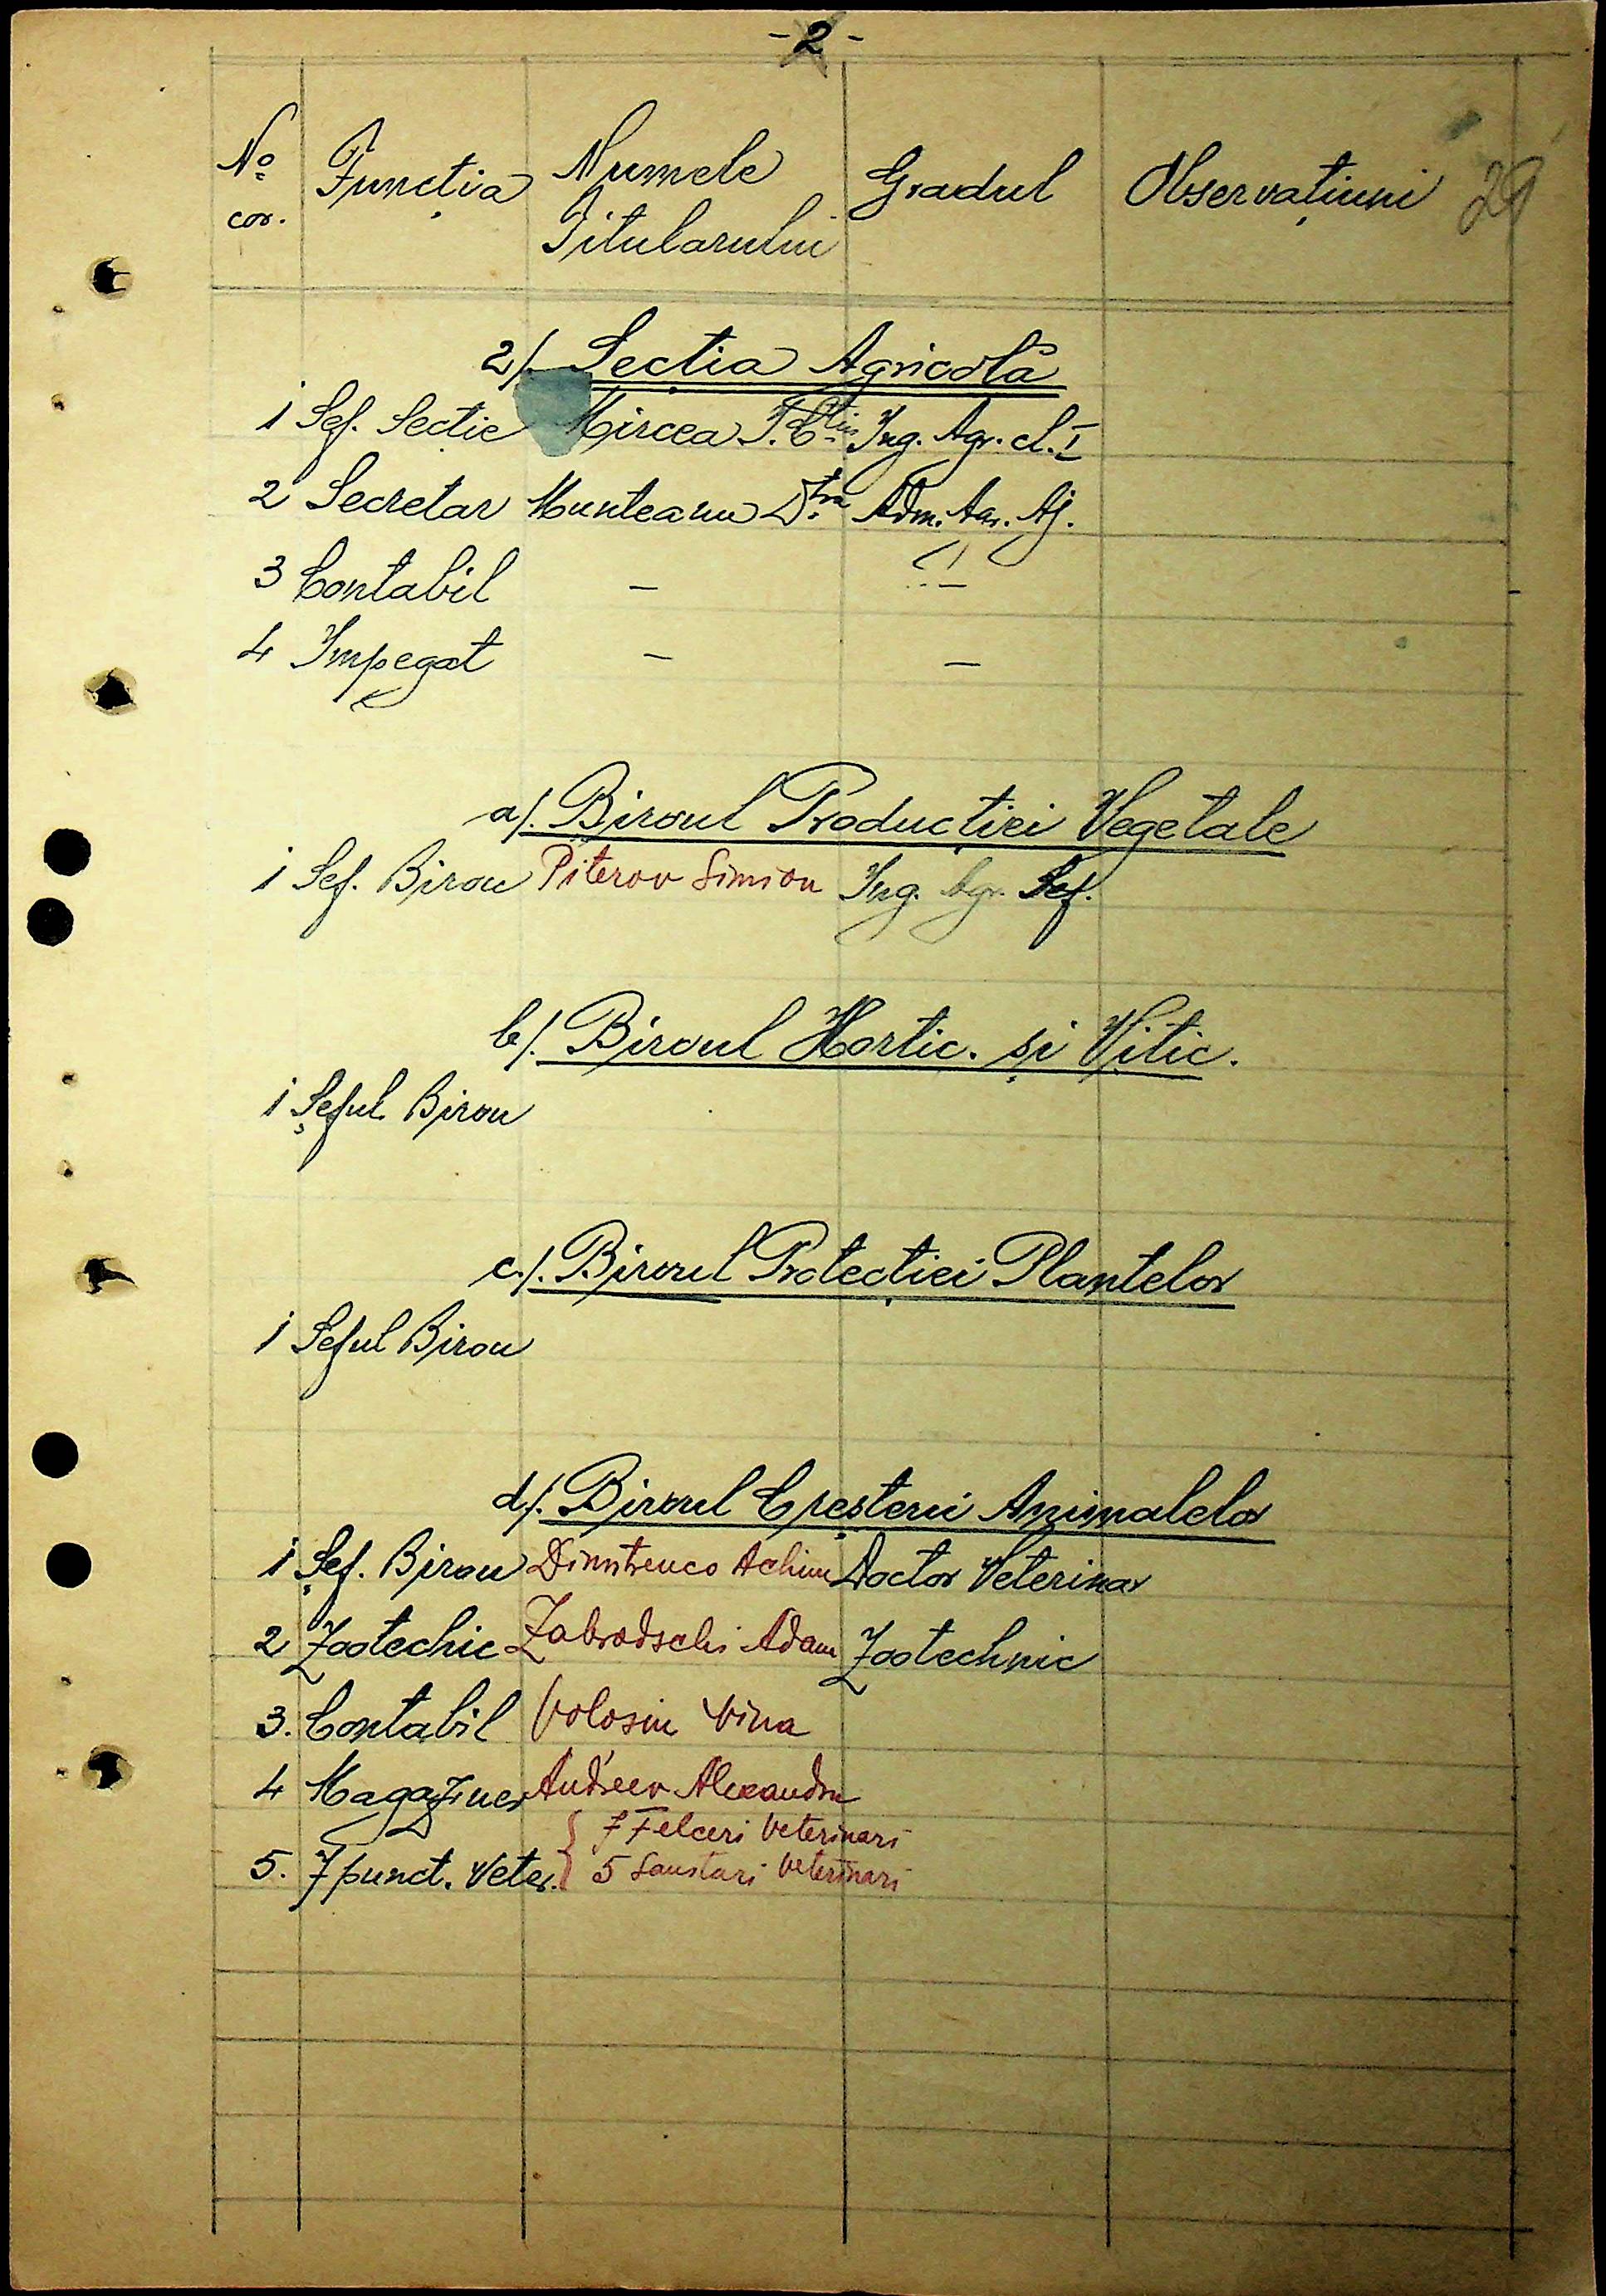 - 2 -
No cor. Funcția Numele Titularului Gradul Observațiuni 29
2/. Secția Agricolă
1 Sef. Secție Mircea I. C-tin Ing. Agr. cl. I
2 Secretar Munteanu D-tru Adm. Agr. Aj.
3 Contabil - -
4 Impegat - -
a/. Biroul Producției Vegetale
1 Sef. Birou Piterov Simion Ing. Agr. Sef.
b/. Biroul Hortic. și Vitic.
1 Șeful Birou
c/. Biroul Protecției Plantelor
1 Seful Birou
d/. Biroul Creșterii Animalelor
1 Șef. Birou Dimitrenco Achim Doctor Veterinar
2 Zootechic Zabrodschi Adam Zootechnic
3. Contabil Volosin Vina
4 Magaziner Andreev Alexandru
5. 7 punct. Veter. { 7 Felceri Veterinari
5 Sanitari Veterinari